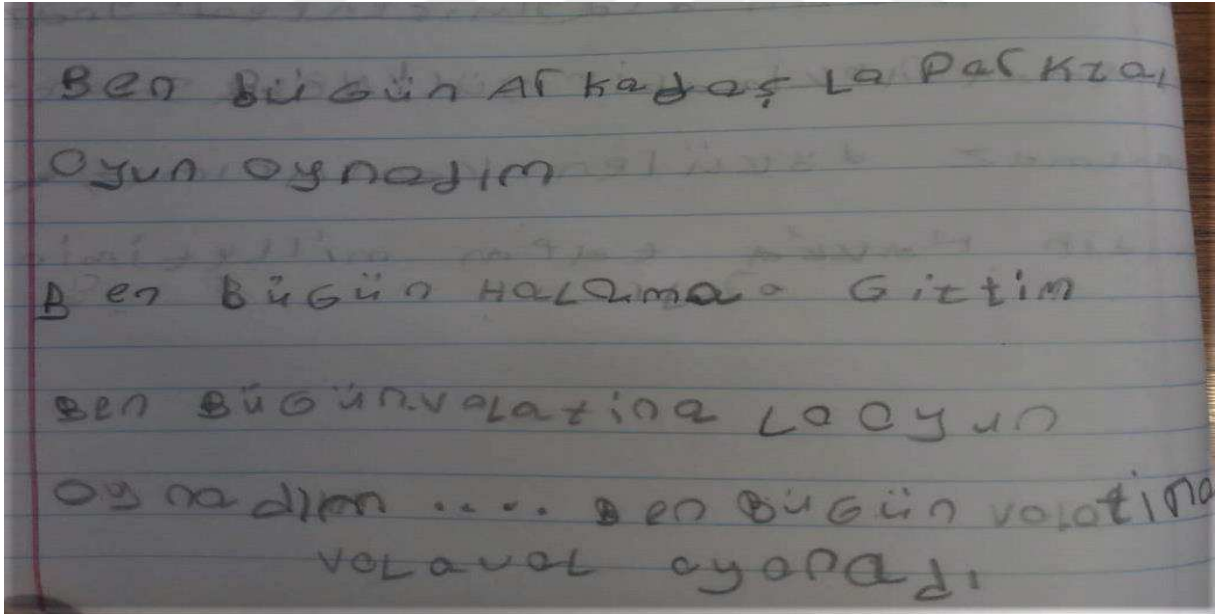 Ben BüGün Arkadaş La Parkta,
Oyun oynadım
Ben BüGün HaLama Gittim
Ben BüGün.vaLatina La Oyun
oynadım .... Ben BüGün volatina
voLavoL oyanadı